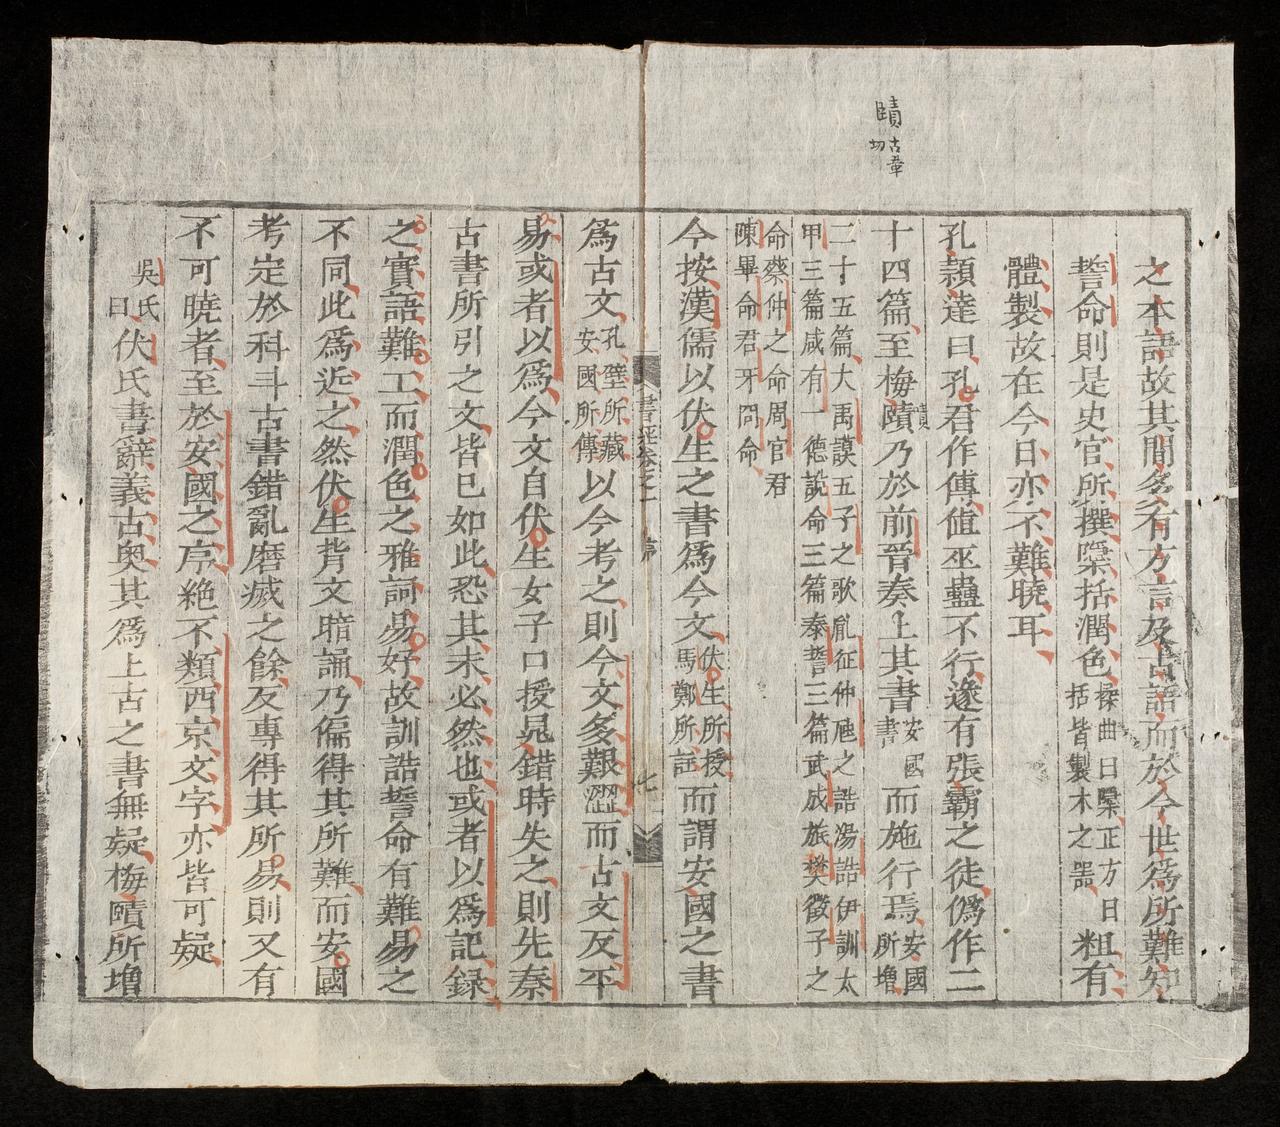 賾古韋切
之本語故其間多有方言及古語而於今世爲所難知
誓命則是史官所撰櫽括潤色櫽曲曰櫽正方曰括皆製木之器粗有
體製故在今日亦不難曉耳
孔頴達曰孔君作傳值巫蠱不行遂有張霸之徒僞作二
十四篇至梅賾乃於前晉奏上其書安國書而施行焉安國所增
二十五篇大禹謨五子之歌胤征仲虺之誥湯誥伊訓太
甲三篇咸有一德說命三篇泰誓三篇武成旅獒微子之
命蔡仲之命周官君
陳畢命君牙冏命
今按漢儒以伏生之書爲今文伏生所授馬鄭所註而謂安國之書
書經卷之一 序 七
爲古文孔壁所藏安國所傳以今考之則今文多艱澀而古文反平
易或者以爲今文自伏生女子口授晁錯時失之則先秦
古書所引之文皆已如此恐其未必然也或者以爲記録
之實語難工而潤色之雅詞易好故訓誥誓命有難易之
不同此爲近之然伏生背文暗誦乃偏得其所難而安國
考定於科斗古書錯亂磨滅之餘反專得其所易則又有
不可曉者至於安國之序絶不類西京文字亦皆可疑
吳氏曰伏氏書辭義古奥其爲上古之書無疑梅賾所増